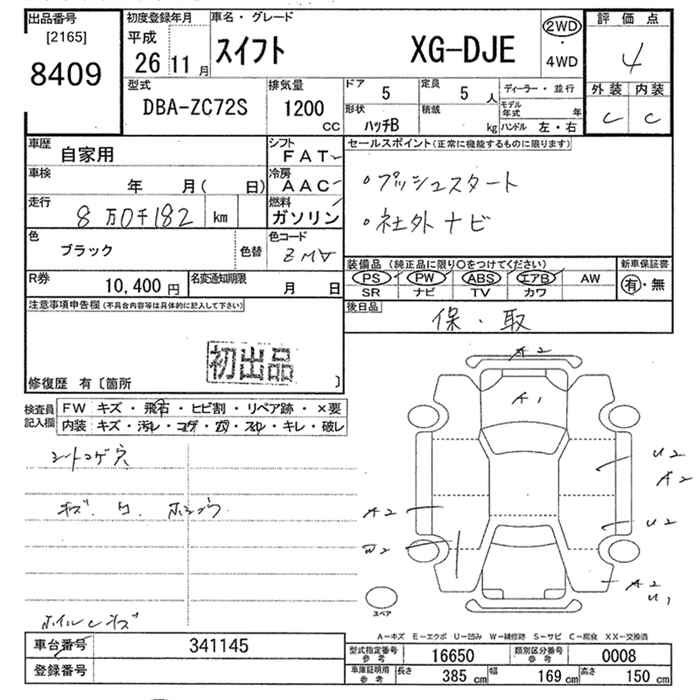 出品番号
[2165]
8409
初度登録年月
平成
26年 11月
車名・グレード
スイフト XG-DJE
2WD
・
4WD
評価点
4
外装 内装
C C
型式
DBA-ZC72S
排気量
1200
CC
ドア
5
定員
5人
形状
ハッチB
積載
kg
ディーラー・並行
モデル年式 年
ハンドル 左・右
車歴
自家用
シフト
FAT
車検
年 月( 日)
冷房
AAC
走行
8万0千182 km
燃料
ガソリン
色
ブラック
色替
色コード
ZMV
R券
10,400円
名変通知期限
月 日
セールスポイント(正常に機能するものに限ります)
・プッシュスタート
・社外ナビ
装備品 (純正品に限り○をつけてください)
PS PW ABS エアB AW
SR ナビ TV カワ
新車保証書
有・無
後日品
保・取
注意事項申告欄(不具合内容等は具体的に記入して下さい)
初出品
修復歴 有〔箇所 〕
検査員記入欄
FW キズ・飛石・ヒビ割・リペア跡・×要
内装 キズ・汚レ・コゲ・穴・スレ・キレ・破レ
シートコゲ穴
ホイルキズ
A2
A1
U2
A2
A2
U2
W2
A2
U1
スペア
A-キズ E-エクボ U-凹み W-補修跡 S-サビ C-腐食 XX-交換済
車台番号
341145
登録番号
型式指定番号
参考
16650
類別区分番号
参考
0008
車庫証明用
参考
長さ
385 cm
幅
169 cm
高さ
150 cm